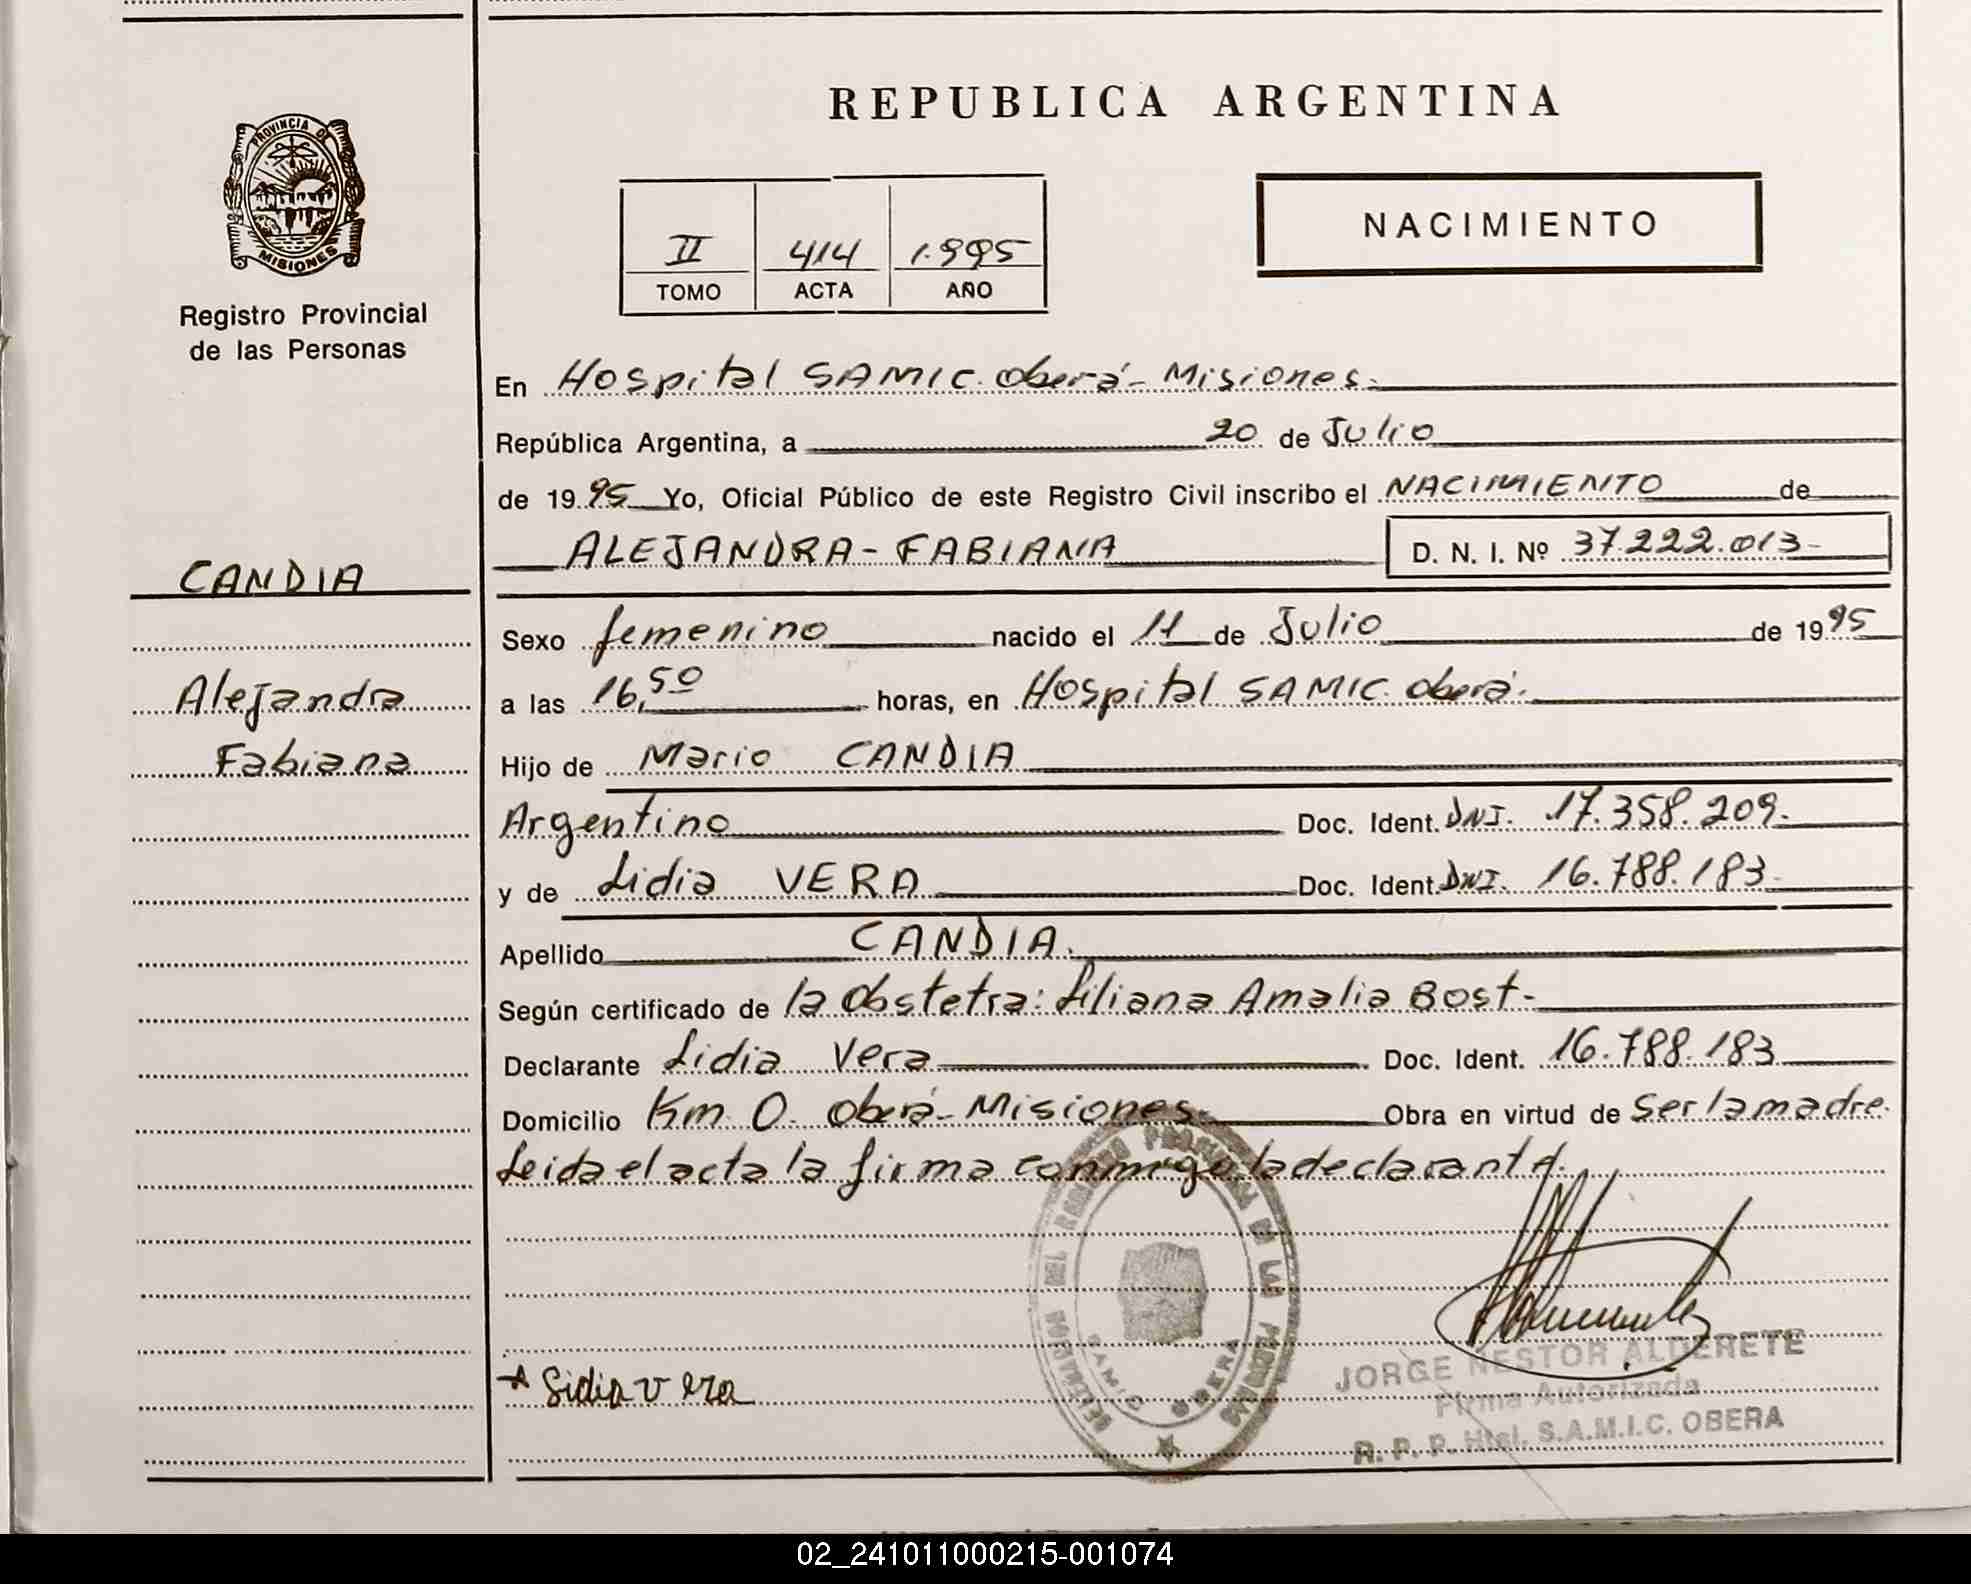 REPUBLICA ARGENTINA
PROVINCIA DE
MISIONES
Registro Provincial
de las Personas
NACIMIENTO
II 414 1.995
TOMO ACTA AÑO
En Hospital SAMIC. Oberá - Misiones.
República Argentina, a 20 de Julio
de 1995 Yo, Oficial Público de este Registro Civil inscribo el NACIMIENTO de
ALEJANDRA - FABIANA D. N. I. Nº 37.222.013-
CANDIA
Alejandra
Fabiana
Sexo femenino nacido el 11 de Julio de 1995
a las 16,50 horas, en Hospital SAMIC. Oberá.
Hijo de Mario CANDIA
Argentino Doc. Ident. DNI. 17.358.209.
y de Lidia VERA Doc. Ident. DNI. 16.788.183
Apellido CANDIA.
Según certificado de la Obstetra: Liliana Amalia Bost-
Declarante Lidia Vera Doc. Ident. 16.788.183
Domicilio Km. 0. Oberá - Misiones. Obra en virtud de ser la madre.
Leida el acta la firma conmigo la declarante.
DELEGACION DEL REGISTRO PROVINCIAL DE LAS PERSONAS
SAMIC OBERA
Lidia vera
JORGE NESTOR ALDERETE
Firma Autorizada
R. P. P. Htal. S.A.M.I.C. OBERA
02_241011000215-001074